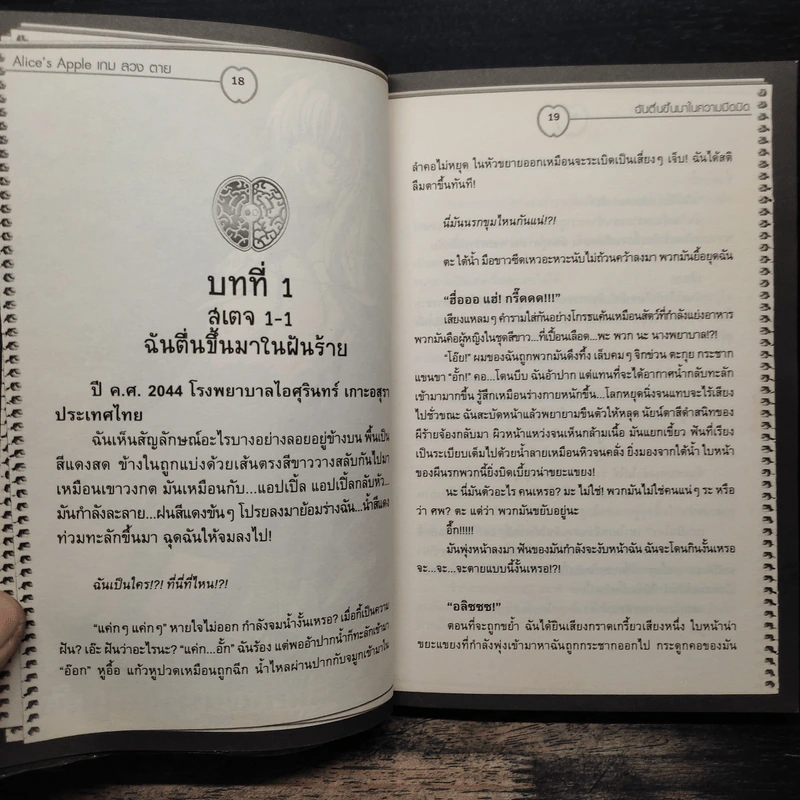 Alice's Apple เกม ลวง ตาย
18
บทที่ 1
สเตจ 1-1
ฉันตื่นขึ้นมาในฝันร้าย
ปี ค.ศ. 2044 โรงพยาบาลไอศุรินทร์ เกาะอสุรา
ประเทศไทย
ฉันเห็นสัญลักษณ์อะไรบางอย่างลอยอยู่ข้างบน พื้นเป็น
สีแดงสด ข้างในถูกแบ่งด้วยเส้นตรงสีขาววางสลับกันไปมา
เหมือนเขาวงกต มันเหมือนกับ...แอปเปิ้ล แอปเปิ้ลกลับหัว...
มันกำลังละลาย...ฝนสีแดงข้นๆ โปรยลงมาย้อมร่างฉัน...น้ำสีแดง
ท่วมทะลักขึ้นมา ฉุดฉันให้จมลงไป!
ฉันเป็นใคร!?! ที่นี่ที่ไหน!?!
"แค่กๆ แค่กๆ" หายใจไม่ออก กำลังจมน้ำงั้นเหรอ? เมื่อกี้เป็นความ
ฝัน? เอ๊ะ ฝันว่าอะไรนะ? "แค่ก...อั้ก" ฉันร้อง แต่พออ้าปากน้ำก็ทะลักเข้ามา
"อ๊อก" หูอื้อ แก้วหูปวดเหมือนถูกฉีก น้ำไหลผ่านปากกับจมูกเข้ามาใน
19
ฉันตื่นขึ้นมาในความมืดมิด
ลำคอไม่หยุด ในหัวขยายออกเหมือนจะระเบิดเป็นเสี่ยงๆ เจ็บ! ฉันได้สติ
ลืมตาขึ้นทันที!
นี่มันนรกขุมไหนกันแน่!?!
ตะ ใต้น้ำ มือขาวซีดเหวอะหวะนับไม่ถ้วนคว้าลงมา พวกมันยื้อยุดฉัน
"ฮื่อออ แฮ่! กรี๊ดดด!!!"
เสียงแหลมๆ คำรามใส่กันอย่างโกรธแค้นเหมือนสัตว์ที่กำลังแย่งอาหาร
พวกมันคือผู้หญิงในชุดสีขาว...ที่เปื้อนเลือด...พะ พวก นะ นางพยาบาล!?!
"โอ๊ย!" ผมของฉันถูกพวกมันดึงทึ้ง เล็บคมๆ จิกข่วน ตะกุย กระชาก
แขนขา "อั้ก!" คอ...โดนบีบ ฉันอ้าปาก แต่แทนที่จะได้อากาศน้ำกลับทะลัก
เข้ามามากขึ้น รู้สึกเหมือนร่างกายหนักขึ้น...โลกหยุดนิ่งจนแทบจะไร้เสียง
ไปชั่วขณะ ฉันสะบัดหน้าแล้วพยายามขืนตัวให้หลุด นัยน์ตาสีดำสนิทของ
ผีร้ายจ้องกลับมา ผิวหน้าแหว่งจนเห็นกล้ามเนื้อ มันแยกเขี้ยว ฟันที่เรียง
เป็นระเบียบเต็มไปด้วยน้ำลายเหมือนหิวจนคลั่ง ยิ่งมองจากใต้น้ำ ใบหน้า
ของผีนรกพวกนี้ยิ่งบิดเบี้ยวน่าขยะแขยง!
นะ นี่มันตัวอะไร คนเหรอ? มะ ไม่ใช่! พวกมันไม่ใช่คนแน่ๆ ระ หรือ
ว่า ศพ? ตะ แต่ว่า พวกมันขยับอยู่นะ
อึ๊ก!!!!!
มันพุ่งหน้าลงมา ฟันของมันกำลังจะงับหน้าฉัน ฉันจะโดนกินงั้นเหรอ
จะ...จะ...จะตายแบบนี้งั้นเหรอ!?!
"อลิซซซ!"
ตอนที่จะถูกขย้ำ ฉันได้ยินเสียงกราดเกรี้ยวเสียงหนึ่ง ใบหน้าน่า
ขยะแขยงที่กำลังพุ่งเข้ามาหาฉันถูกกระชากออกไป กระดูกคอของมัน